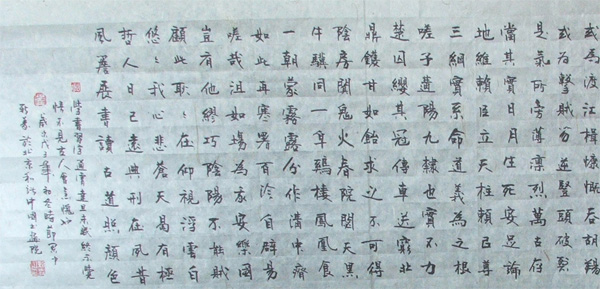 或為渡江楫慷慨吞胡羯
或為擊賊笏逆豎頭破裂
是氣所旁薄凜烈萬古存
當其貫日月生死安足論
地維賴㠯立天柱賴㠯尊
三綱實系命道義為之根
嗟予遘陽九隸也實不力
楚囚纓其冠傳車送窮北
鼎鑊甘如飴求之不可得
陰房闃鬼火春院閟天黑
牛驥同一皁鷄棲鳳凰食
一朝蒙霧露分作溝中瘠
如此再寒暑百沴自辟易
嗟哉沮洳場為我安樂國
豈有他繆巧陰陽不能賊
顧此耿耿在仰視浮雲白
悠悠我心悲蒼天曷有極
哲人日已遠典刑在夙昔
風簷展書讀古道照顏色
不見古人
歲次戊子年初冬時節
於北京